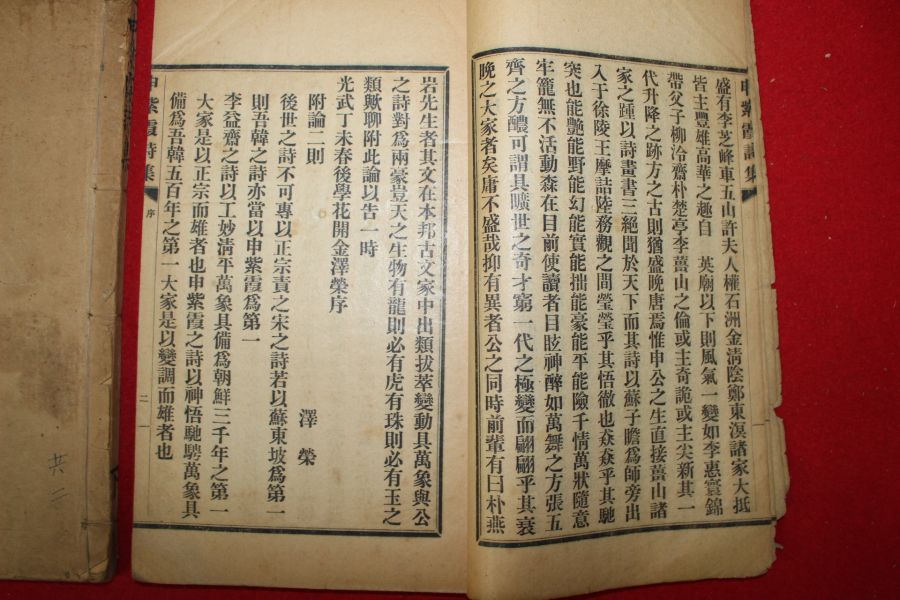 盛有李芝峰車五山許夫人權石洲金清陰鄭東溟諸家大抵
皆主豐雄高華之趣自　英廟以下則風氣一變如李惠寰錦
帶父子柳泠齋朴楚亭李薑山之倫或主奇詭或主尖新其一
代升降之跡方之古則猶盛晚唐焉惟申公之生直接薑山諸
家之踵以詩畫書三絕聞於天下而其詩以蘇子瞻爲師旁出
入于徐陵王摩詰陸務觀之間瑩瑩乎其悟徹也猋猋乎其馳
突也能艷能野能幻能實能拙能豪能平能險千情萬狀隨意
牢籠無不活動森在目前使讀者目眩神醉如萬舞之方張五
齊之方醲可謂具曠世之奇才窮一代之極變而翩翩乎其衰
晚之大家者矣庸不盛哉抑有異者公之同時前輩有曰朴燕
申紫霞詩集
岩先生者其文在本邦古文家中出類拔萃變動具萬象與公
之詩對爲兩豪豈天之生物有龍則必有虎有珠則必有玉之
類歟聊附此論以告一時
光武丁未春後學花開金澤榮序
附論二則　澤榮
後世之詩不可專以正宗責之宋之詩若以蘇東坡爲第一
則吾韓之詩亦當以申紫霞爲第一
李益齋之詩以工妙淸平萬象具備爲朝鮮三千年之第一
大家是以正宗而雄者也申紫霞之詩以神悟馳騁萬象具
備爲吾韓五百年之第一大家是以變調而雄者也
申紫霞詩集　序　二
共二